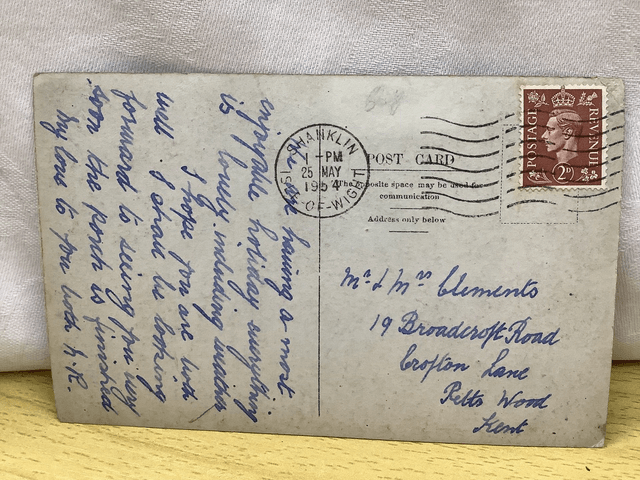 We are having a most
enjoyable holiday everything
is lovely including weather
I hope you are both
well I shall be looking
forward to seeing you very
soon the porch is finished
My love to you both
SHANKLIN
1 - PM
25 MAY
1954
ISL-OF-WIGHT
POST CARD
The opposite space may be used for
communication
Address only below
POSTAGE REVENUE
2D
Mr & Mrs Clements
19 Broadcroft Road
Crofton Lane
Petts Wood
Kent